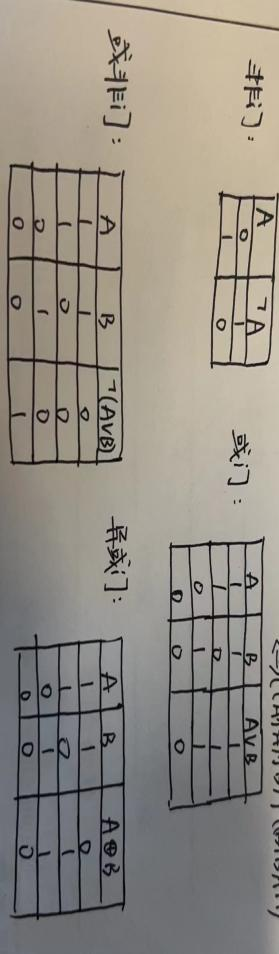 非门:
A ¬A
0 1
1 0
或门:
A B A∨B
1 1 1
1 0 1
0 1 1
0 0 0
或非门:
A B ¬(A∨B)
1 1 0
1 0 0
0 1 0
0 0 1
异或门:
A B A⊕B
1 1 0
1 0 1
0 1 1
0 0 0